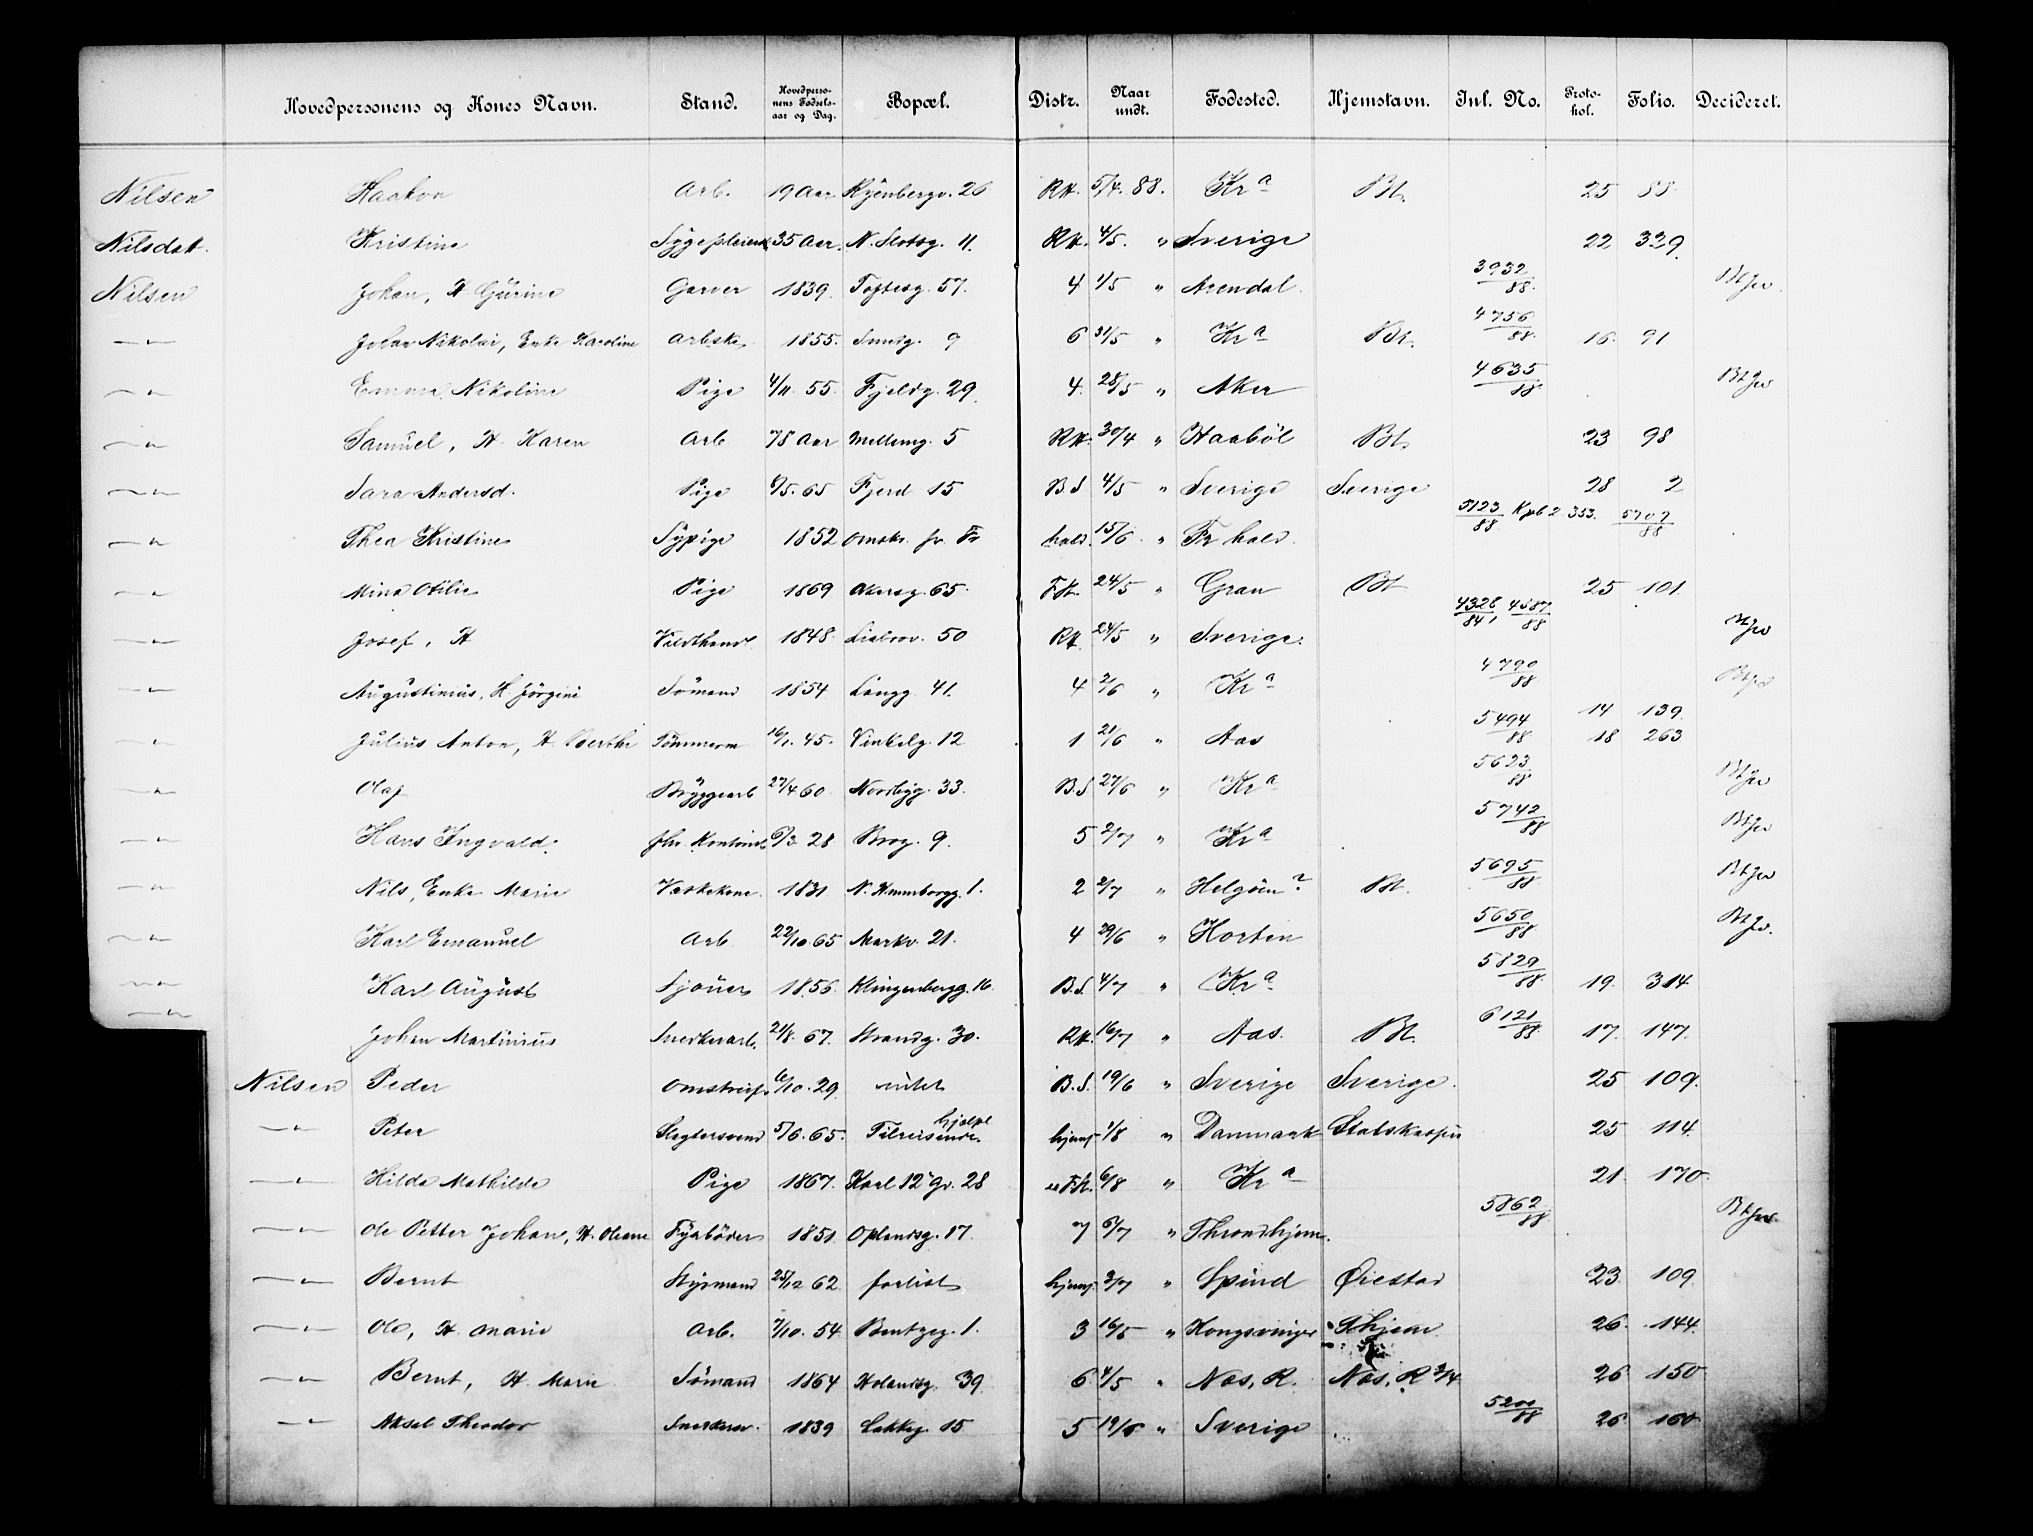 Hovedpersonens og Kones Navn. Stand. Hovedpersonens Fødselsaar og Dag. Bopæl. Distr. Naar undt. Fødested. Hjemstavn. Inl. No. Protokol. Folio. Decideret.
Nilsen Haakon Arb. 19 Aar Ryenbergv. 26 RH. 5/4. 88. Kra Bt. 25 88.
Nilsdatt. Kristine Sygepleiersk 35 Aar. N. Slotsg. 11. RH. 4/5. " Sverige 22 339.
Nilsen Johan, H Gurine Garver 1839. Toftesg. 57. 4 1/5 " Arendal. 3932/88. Btjw.
—"— Johan Nikolai, Enke Karoline Arbske 1855. Smedg. 9 6 31/5 " Kra Bt. 4756/88. 16. 91
—"— Emma Nikoline Pige 4/11. 55. Fjeldg. 29. 4. 28/5 " Aker 4635/88. Btjw
—"— Samuel, H. Karen Arb 78 Aar Mellemg. 5 RH. 30/4 " Haabøl Bt. 23 98
—"— Sara Andersd. Pige 6/5. 65 Fjerd 15 B.S 4/5 " Sverige Sverige 28 2
—"— Thea Kristine Sypige 1852 Omstr. fr. Fr hald. 15/6 " Fr hald. 5123/88 Kpb 2. 353. 5707/88
—"— Mina Otilie Pige 1869 Akersg. 65. FH. 24/5 " Gran Bt 25 101.
—"— Josef, H Vildthandl 1848. Liabrov. 50 RH. 24/5 " Sverige. 4328/84, 4587/88 Btjw
—"— Augustinius, H. Jörgine Sömand 1854 Langg. 41. 4 2/6 " Kra 4790/88 Btjw
—"— Julius Anton, H. Berthe Tömmerm 16/1. 45. Vinkelg. 12 1 21/6 " Aas 5494/88 14 139. 18 263
—"— Olaf Bryggearb 27/4 60. Nordbyg. 33. B.S 27/6 " Kra 5623/88 Btjw
—"— Hans Ingvald. fhv. Kontorist 6/3 28 Brog. 9. 5 2/7 " Kra 5742/88 Btjw
—"— Nils, Enke Marie Vaskekone. 1831. N. Hammborgg. 1. 2 2/7 " Helgöen? Bt. 5695/88. Btjw
—"— Karl Emanuel Arb 22/10. 65 Markv. 21. 4 29/6 " Horten 5650/88 Btjw.
—"— Karl August Sjouer 1856. Klingenbergg. 16. B.S. 4/7 " Kra 5829/88. 19. 314.
—"— Johan Martinius Snedkerarb. 21/8. 67. Strandg. 30. RH. 16/7 " Aas. Bt. 6121/88. 17. 147.
Nilsen Peder Omstreif. 6/10. 29. intet B.S. 19/6 " Sverige Sverige. 25 109.
—"— Peter Slagtersvend 5/6. 65. Tilreisende. hjælpl hjemf 1/8 " Danmark Statskassen 25 114.
—"— Hilda Mathilde Pige 1867. Karl 12 g. 28 FH. 6/8 " Kra 21. 170.
—"— Ole Petter Johan, H. Oleane Fyrbøder 1851. Oplandsg. 17. 7 6/7 " Throndhjem. 5862/88. Btjw
—"— Bernt Styrmand 25/12 62. forlist hjemf. 3/7 " Spind Øiestad 23. 109.
—"— Ole, H. Marie Arb. 7/10. 54. Bentzeg. 1. 3 16/5 " Kongsvinger Thjem. 26. 144.
—"— Bernt, H. Marie Sömand 1864 Holandsg. 39. 6. 4/5 " Næs, R. Næs, R 3/4 26 150.
—"— Aksel Theodor Snedker. 1839 Lakkeg. 15 5 19/6 " Sverige 5200/88 26. 160.